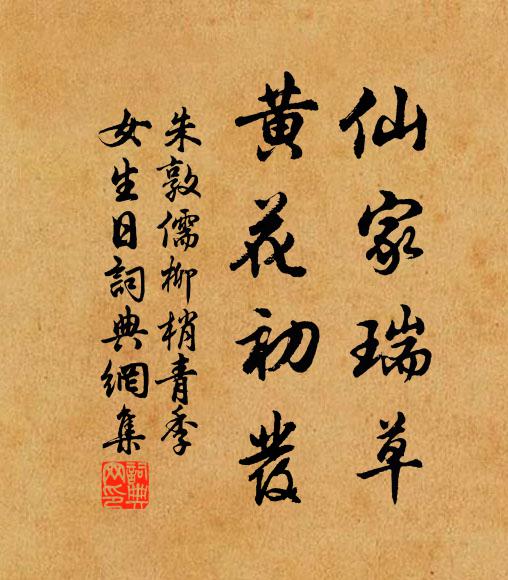 仙家瑞草
黄花初發
朱敦儒柳梢青季
女生日詞典網集
詞典
网印